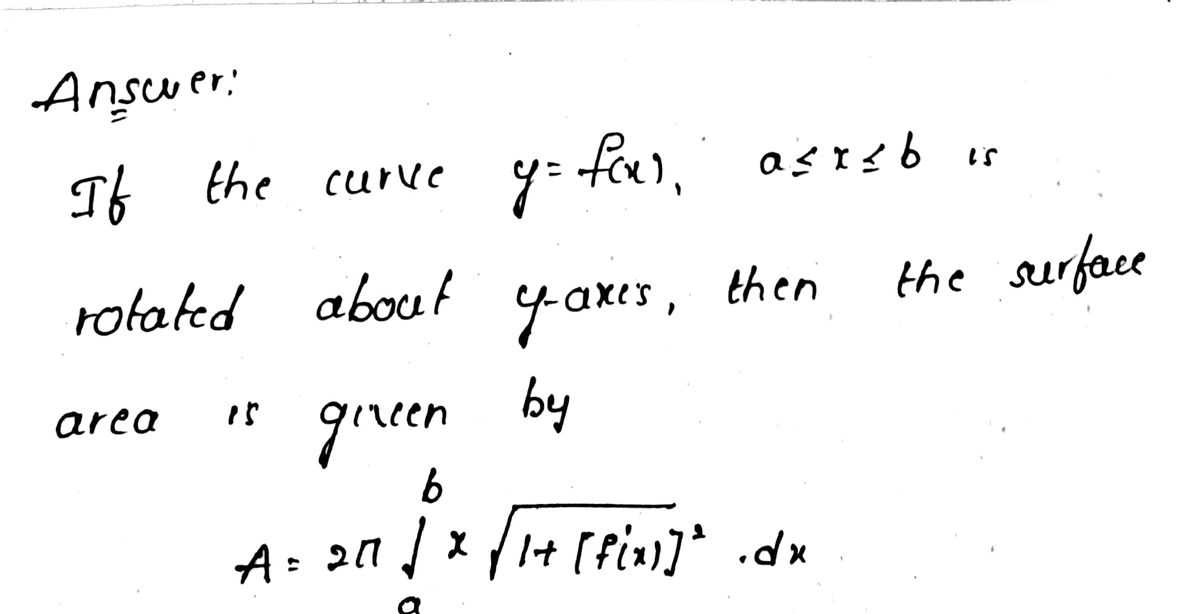 Answer:
If the curve y = f(x), a ≤ x ≤ b is
rotated about y-axis, then the surface
area is given by
A = 2π ∫_a^b x √(1 + [f'(x)]²) . dx